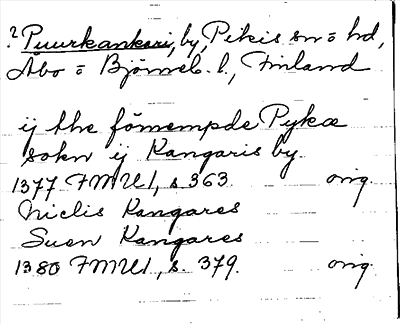 ? Puurkankari, by, Pikis sn o hd,
Åbo o Björneb. l., Finland
ij the fömempde Pykæ
sokn ij Kangaris by.
1377 FMU I, s. 363. orig.
Niclis Kangares
Suen Kangares
1380 FMU I, s. 379. orig.